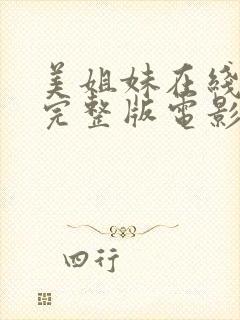 美姐妹在线
完整版電影
四行